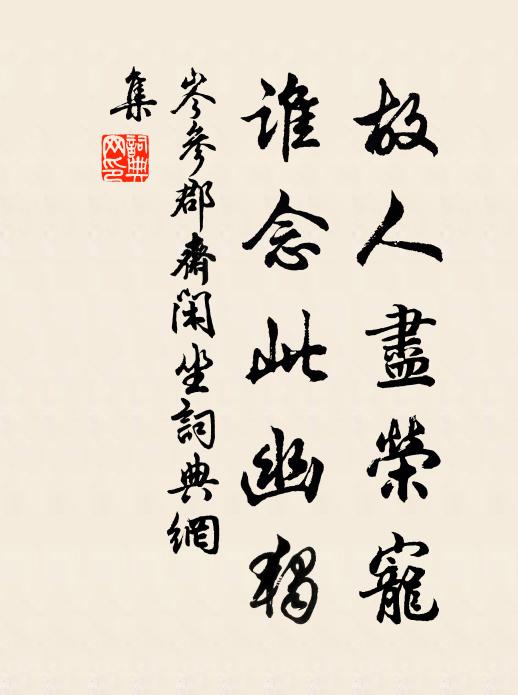 故人盡榮寵
誰念此幽獨
岑參郡齋閑坐詞典網
集
詞典
网印